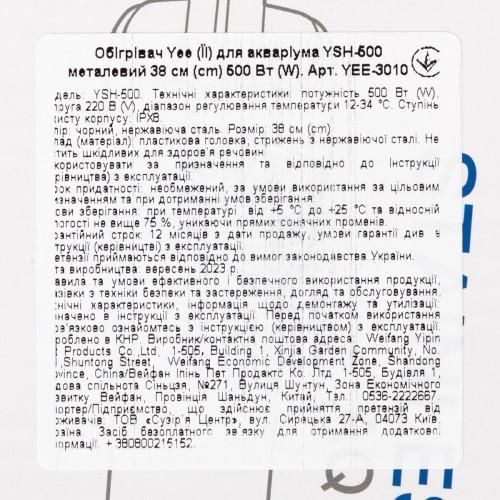 Обігрівач Yee (Її) для акваріума YSH-500
металевий 38 см (cm) 500 Вт (W). Арт. YEE-3010
дель: YSH-500. Технічні характеристики: потужність 500 Вт (W),
пруга 220 В (V), діапазон регулювання температури 12-34 °C. Ступінь
хисту корпусу: IPX8.
лір: чорний, нержавіюча сталь. Розмір: 38 см (cm)
лад (матеріал): пластикова головка, стрижень з нержавіючої сталі. Не
стить шкідливих для здоров'я речовин.
користовувати за призначення та відповідно до Інструкції
рівництва) з експлуатації.
рок придатності: необмежений, за умови використання за цільовим
изначенням та при дотриманні умов зберігання.
ови зберігання: при температурі від +5 °C до +25 °C та відносній
логості не вище 75 %, уникаючи прямих сонячних променів.
рантійний строк: 12 місяців з дати продажу, умови гарантії див в
трукції (керівництві) з експлуатації.
етензії приймаються відповідно до вимог законодавства України.
та виробництва: вересень 2023 р.
равила та умови ефективного і безпечного використання продукції,
азівки з техніки безпеки та застереження, догляд та обслуговування,
хнічні характеристики, інформація щодо демонтажу та утилізації
значено в інструкції з експлуатації. Перед початком використання
ов'язково ознайомтесь з інструкцією (керівництвом) з експлуатації.
роблено в КНР. Виробник/контактна поштова адреса: Weifang Yipin
t Products Co.,Ltd, 1-505, Building 1, Xinjia Garden Community, No.
1,Shuntong Street, Weifang Economic Development Zone, Shandong
ovince, China/Вейфан Іпінь Пет Продактс Ко. Лтд 1-505, Будівля 1,
дова спільнота Сіньцзя, №271, Вулиця Шунтун, Зона Економічного
звитку Вейфан, Провінція Шаньдун, Китай, Тел. 0536-2222667.
портер/Підприємство, що здійснює прийняття претензій від
оживачів: ТОВ «Сузір'я Центр», вул. Сирецька 27-А, 04073 Київ,
раїна. Засіб безоплатного зв'язку для отримання додаткової
формації: + 380800215152.